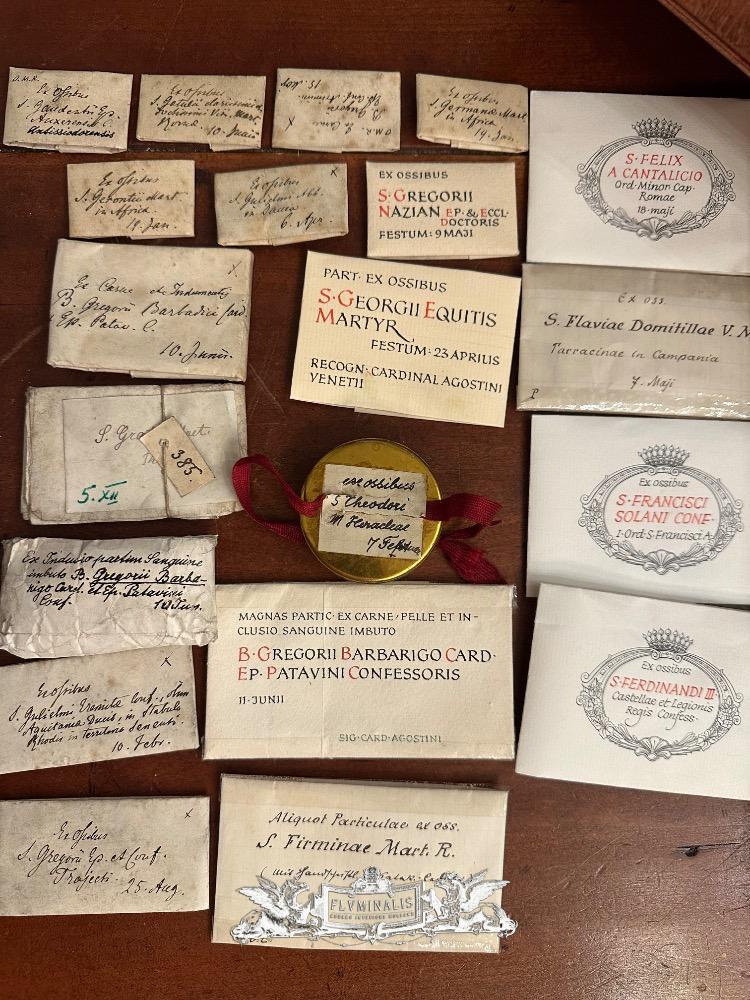 O.M.R.
Ex Ossibus
S. Gaudentii Ep.
Antissiodorensis
Ex Ossibus
Romæ. 10. Junii
15.
Ex Ossibus
S. Germanæ Mart.
in Africa
19. Jan.
Ex ossibus
Mart
in Africa.
19. Jan.
Ex ossibus
S. Gulielmi Abb.
6. Apr.
EX OSSIBUS
S·GREGORII
NAZIAN EP·&ECCL·
DOCTORIS
FESTUM: 9 MAJI
S·FELIX
A CANTALICIO
Ord·Minor Cap·
Romae
18·maji
Ex Carne et Indumentis
B. Gregorii Barbadici Card
Ep. Patav. C.
10. Junii.
PART· EX OSSIBUS
S·GEORGII EQUITIS
MARTYR
FESTUM: 23 APRILIS
RECOGN: CARDINAL AGOSTINI
VENETII
Ex oss.
S. Flaviae Domitillae V. M
Tarracinae in Campania
7. Maji
P
S.
385.
5. XII
ex ossibus
S Theodori
M Heracleae
7
Ex ossibus
S·FRANCISCI
SOLANI CONF·
1·Ord·S·Francisci A·
Ex Indusio partim Sanguine
imbuto B. Gregorii Barba-
rigo Card. et Ep. Patavini
Conf.
MAGNAS PARTIC· EX CARNE, PELLE ET IN-
CLUSIO SANGUINE IMBUTO
B·GREGORII BARBARIGO CARD·
EP·PATAVINI CONFESSORIS
11·JUNII
SIG·CARD·AGOSTINI
Ex ossibus
S·FERDINANDI III·
Castellae et Legionis
Regis Confess·
Ex ossibus
S. Gulielmi Eremitæ Conf., olim
Aquitaniæ Ducis, in Stabulo
Rhodis in territorio Senensi.
10. Febr.
Ex ossibus
S. Gregorii Ep. et Conf.
Trajecti.
25. Aug.
Aliquot Particulae ex oss.
S. Firminae Mart. R.
FLVMINALIS